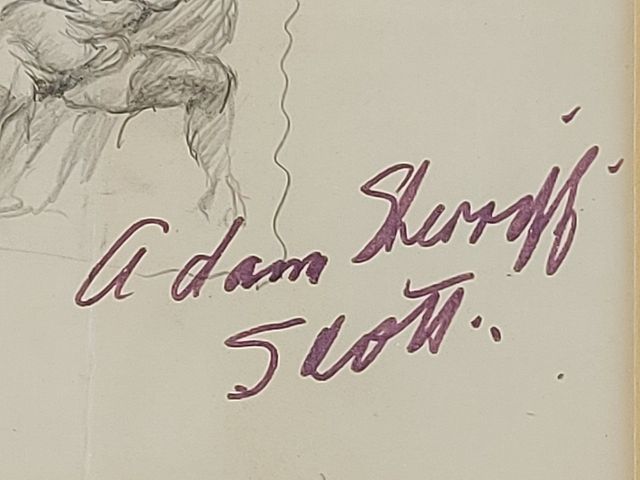 Adam Sherriff
Scott.